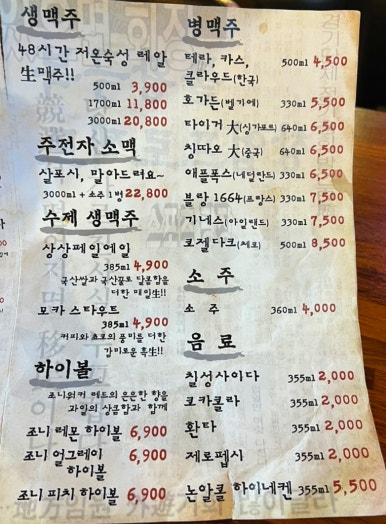 생맥주
48시간 저온숙성 레알
生맥주!!
500ml 3,900
1700ml 11,800
3000ml 20,800
주전자 소맥
살포시, 말아드려요~
3000ml + 소주 1병 22,800
수제 생맥주
상상페일에일
385ml 4,900
국산쌀과 국산꿀로 달콤함을
더한 페일生!!
모카 스타우트
385ml 4,900
커피와 초코의 풍미를 더한
감미로운 흑生!!
하이볼
조니워커 레드의 은은한 향을
과일의 상큼함과 함께
조니 레몬 하이볼 6,900
조니 얼그레이
하이볼 6,900
조니 피치 하이볼 6,900
병맥주
테라, 카스, 500ml 4,500
클라우드(한국)
호가든(벨기에) 330ml 5,500
타이거 大(싱가포르) 640ml 6,500
칭따오 大(중국) 640ml 6,500
애플폭스(네덜란드) 330ml 6,500
블랑 1664(프랑스) 330ml 7,500
기네스(아일랜드) 330ml 7,500
코젤다크(체코) 500ml 8,500
소주
소 주 360ml 4,000
음료
칠성사이다 355ml 2,000
코카콜라 355ml 2,000
환타 355ml 2,000
제로펩시 355ml 2,000
논알콜 하이네켄 355ml 5,500